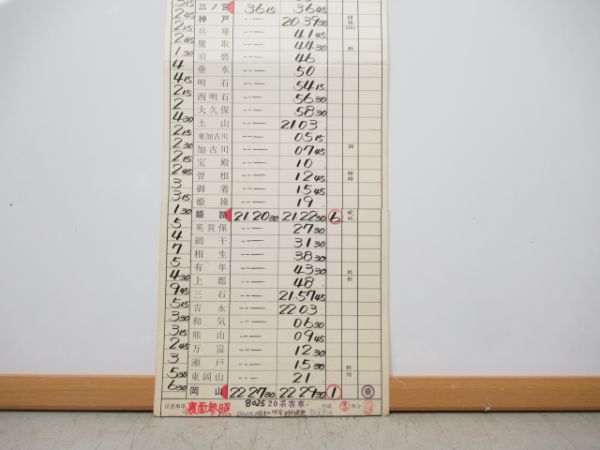 三ノ宮 36 15 36 45
2 45 神戸 20 39 30
2 15 兵庫 41 45
2 45 鷹取 44 30
1 30 須磨 46
4 垂水 50
4 15 明石 54 15
2 15 西明石 56 30
2 大久保 58 30
4 30 土山 21 03
2 15 東加古川 05 15
2 30 加古川 07 45
2 15 宝殿 10
2 45 曽根 12 45
3 御着 15 45
3 15 姫操 19
1 30 姫路 21 20 30 21 22 30 6
5 英賀保 27 30
4 網干 31 30
7 相生 38 30
5 有年 43 30
4 30 上郡 48
9 45 三石 21 57 45
5 15 吉永 22 03
3 30 和気 06 30
3 15 熊山 09 45
2 45 万富 12 30
3 瀬戸 15 30
5 30 東岡山 21
6 30 岡山 22 27 30 22 29 30 1
注意事項 裏面参照 8025 20系客車